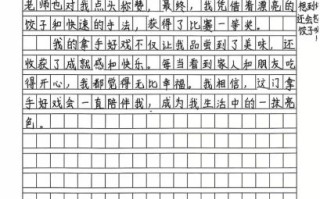 老师也对我点头称赞，最终，我凭借着漂亮的
饺子和快速的手法，获得了比赛一等奖。
我的拿手好戏不仅让我品尝到了美味，还
收获了成就感和快乐。每当看到家人和朋友吃
得开心，我都觉得无比幸福。我相信，这门拿
手好戏会一直陪伴我，成为我生活中的一抹亮
色。
抱到
还会
饺子